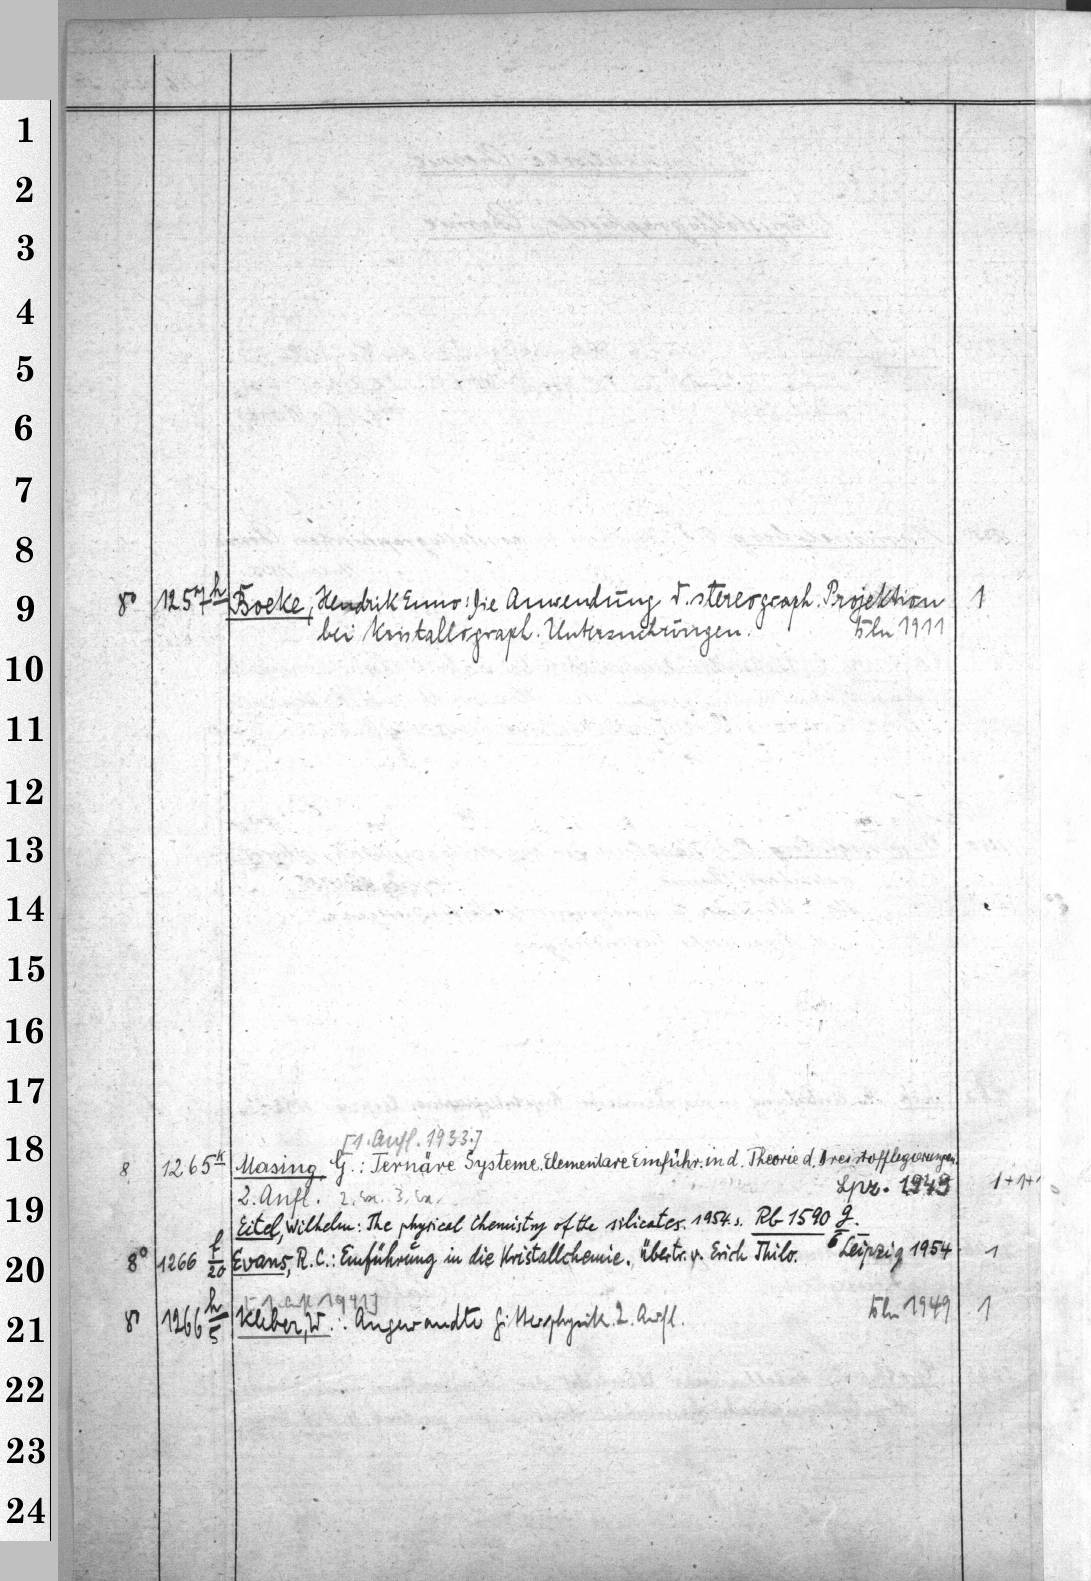 1
2
3
4
5
6
7
8
9
8° 1257 h Boeke, Hendrik Enno: Die Anwendung d. stereograph. Projektion 1
bei Kristallograph. Untersuchungen. Bln 1911
10
11
12
13
14
15
16
17
18
[1. Aufl. 1933.]
8 1265 k Masing, G.: Ternäre Systeme. Elementare Einführ. in d. Theorie d. Dreistofflegierungen.
2. Aufl. 2. Ex. 3. Ex. Lpz. 1949 1+1+1
19
Eitel, Wilhelm: The physical Chemistry of the silicates. 1954. s. Rb 1590 g/6.
20
8° 1266 f/20 Evans, R.C.: Einführung in die Kristallchemie. übertr. v. Erich Thilo. Leipzig 1954 1
[1. Aufl. 1941]
21
8° 1266 h/5 Kleber, W.: Angewandte Gitterphysik. 2. Aufl. Bln 1949 1
22
23
24